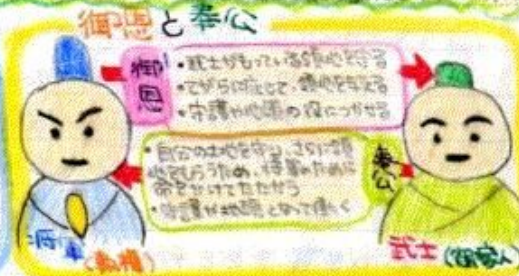 御恩と奉公
御恩
・武士がもっている領地を守る
・てがらに応じて、領地を与える
・守護や地頭の役につかせる
・自分の土地を守り、さらに領
地をもらうため、将軍のために
命をかけてたたかう
・守護や地頭となって働く
奉公
武士(御家人)